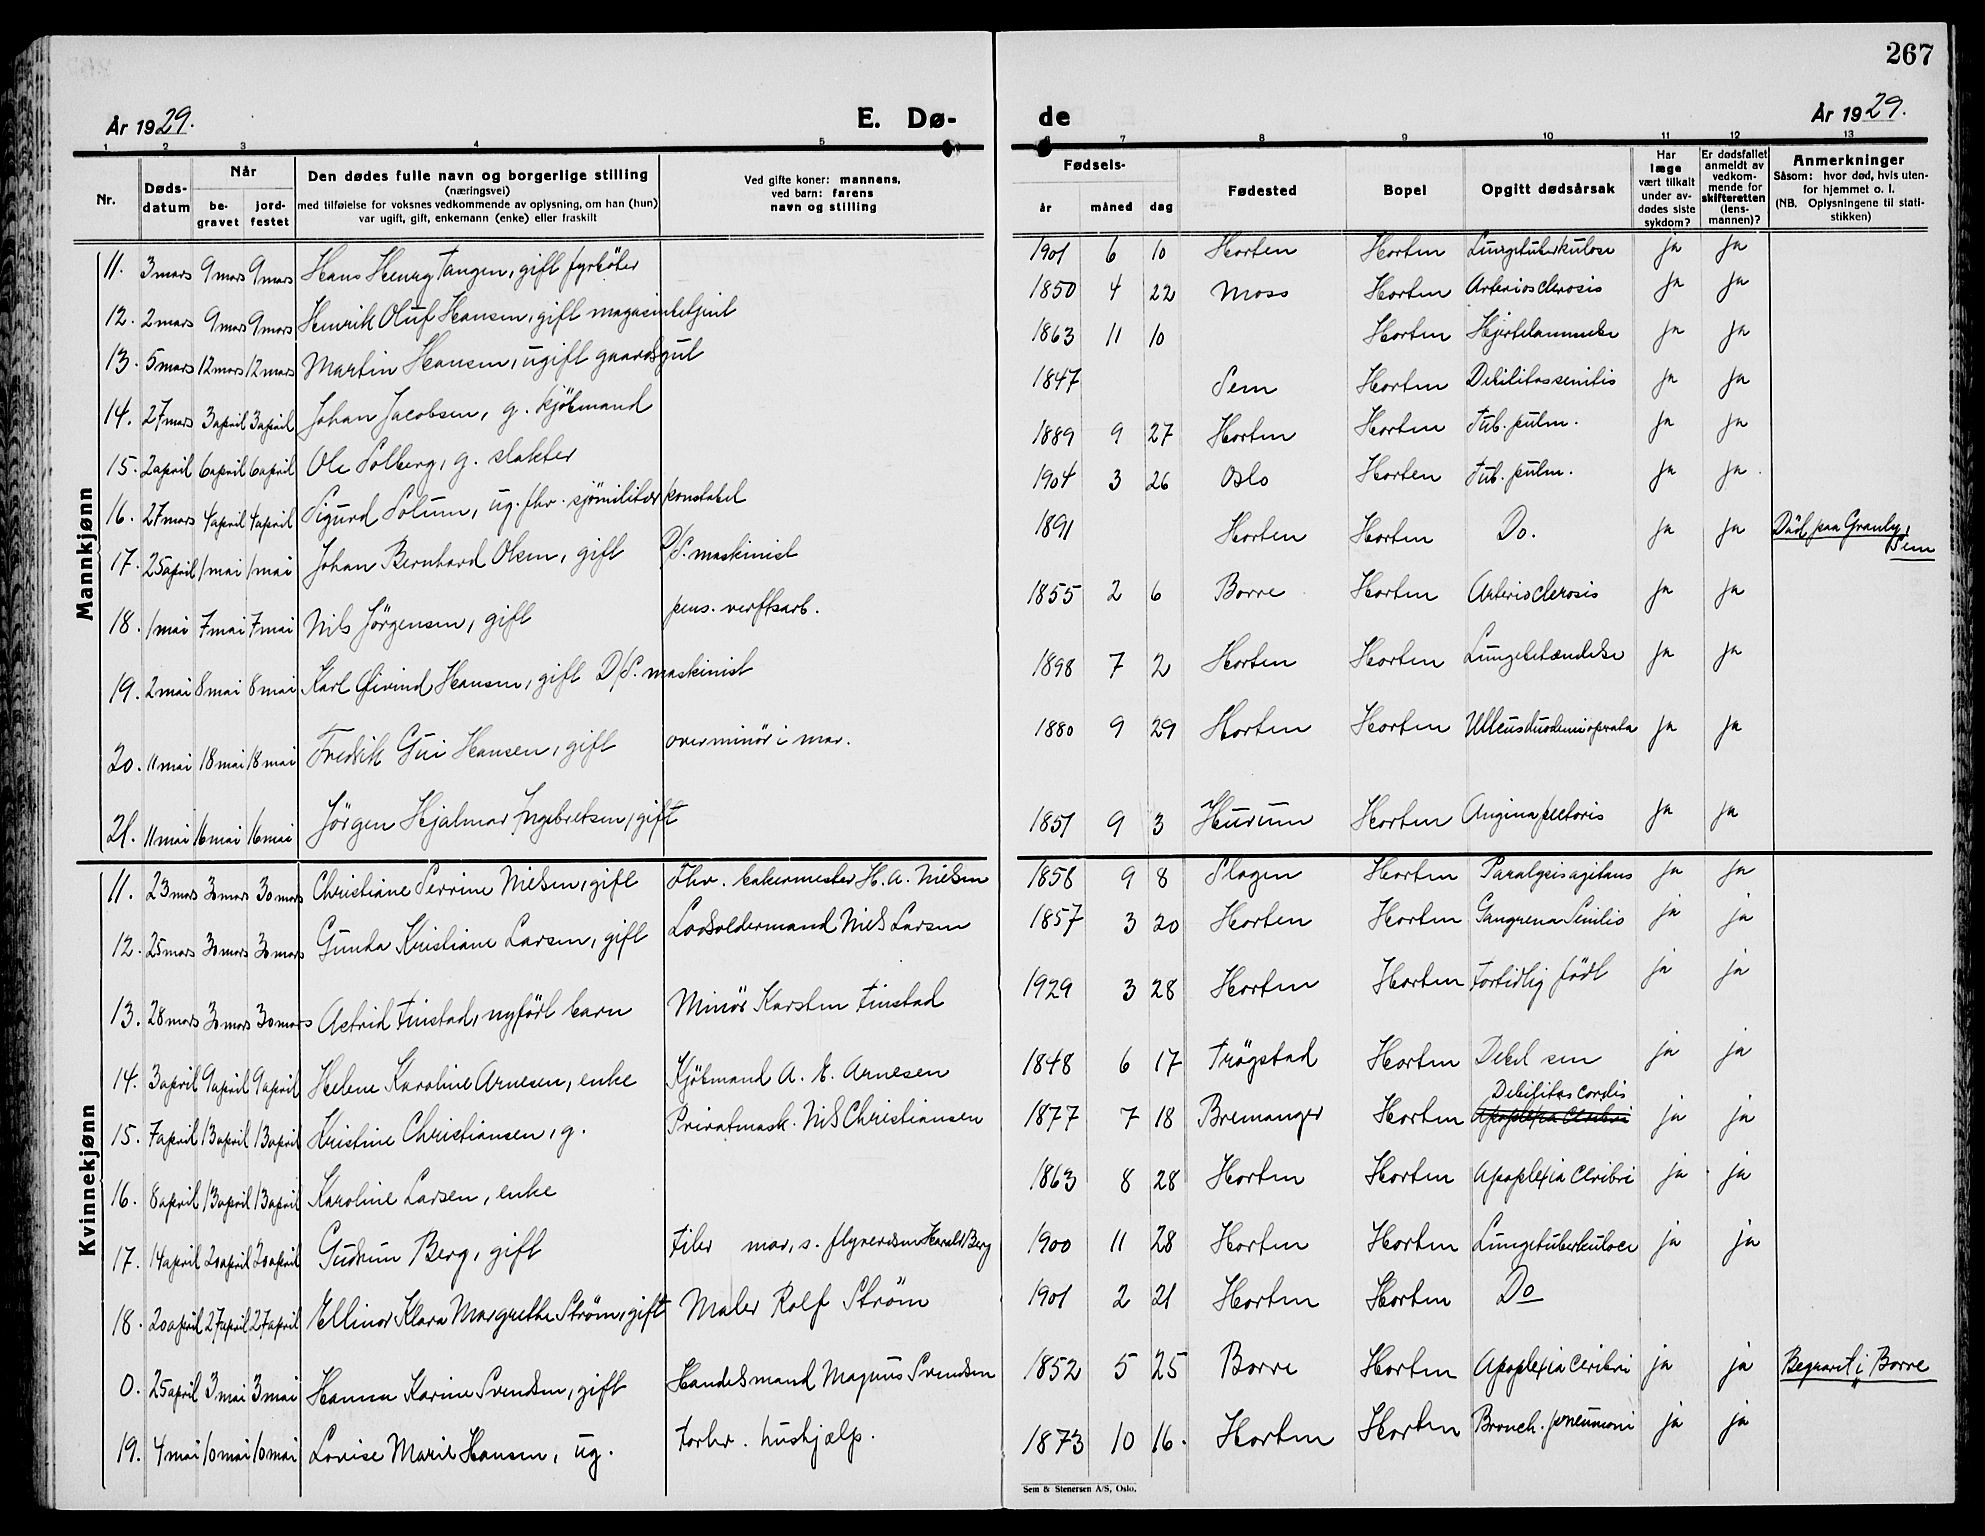 267
År 1929.
E. Dø-
de
År 1929.
1 2 3 4 5 6 7 8 9 10 11 12 13
Nr.
Døds-
datum
Når
be-
gravet
jord-
festet
Den dødes fulle navn og borgerlige stilling
(næringsvei)
med tilføielse for voksnes vedkommende av oplysning, om han (hun)
var ugift, gift, enkemann (enke) eller fraskilt
Ved gifte koner: mannens,
ved barn: farens
navn og stilling
Fødsels-
år måned dag
Fødested
Bopel
Opgitt dødsårsak
Har
læge
vært tilkalt
under av-
dødes siste
sykdom?
Er dødsfallet
anmeldt av
vedkom-
mende for
skifteretten
(lens-
mannen)?
Anmerkninger
Såsom: hvor død, hvis uten-
for hjemmet o. l.
(NB. Oplysningene til stati-
stikken)
Mannkjønn
11. 3 mars 9 mars 9 mars Hans Henry Tangen, gift fyrböter 1901 6 10 Horten Horten Lungetuberkulose ja ja
12. 2 mars 9 mars 9 mars Henrik Oluf Hansen, gift magasinbetjent 1850 4 22 Moss Horten Arteriosclerosis ja ja
13. 5 mars 12 mars 12 mars Martin Hansen, ugift gaardsgut 1863 11 10 Horten Hjertelammelse ja ja
14. 27 mars 3 april 3 april Johan Jacobsen, g. kjöbmand 1847 Sem Horten Debilitas senilis ja ja
15. 2 april 6 april 6 april Ole Solberg, g. slakter 1889 9 27 Horten Horten Tub. pulm. ja ja
16. 27 mars 4 april 4 april Sigurd Solum, ug. fhv. sjömilitær konstabel 1904 3 26 Oslo Horten Tub. pulm. ja ja
17. 25 april 1 mai 1 mai Johan Bernhard Olsen, gift D/S. maskinist 1891 Horten Horten Do. ja ja Död paa Granly,
Sem
18. 1 mai 7 mai 7 mai Nils Jörgensen, gift pens. verftsarb. 1855 2 6 Borre Horten Arteriosclerosis ja ja
19. 2 mai 8 mai 8 mai Karl Øivind Hansen, gift D/S. maskinist 1898 7 2 Horten Horten Lungebetændelse ja ja
20. 11 mai 18 mai 18 mai Fredrik Gui Hansen, gift overminör i mar. 1880 9 29 Horten Horten Ulcus duodeni oprata ja ja
21. 11 mai 16 mai 16 mai Jörgen Hjalmar Ingebretsen, gift 1851 9 3 Hurum Horten Angina pectoris ja ja
Kvinnekjønn
11. 23 mars 30 mars 30 mars Christiane Perrine Nielsen, gift Fhv. bakermester H. A. Nielsen 1858 9 8 Slagen Horten Paralysis agitans ja ja
12. 25 mars 30 mars 30 mars Gunda Kristiane Larsen, gift Losoldermand Nils Larsen 1857 3 20 Horten Horten Gangrena Senilis ja ja
13. 28 mars 30 mars 30 mars Astrid Finstad, nyfödt barn Minör Karsten Finstad 1929 3 28 Horten Horten Fortidlig född ja ja
14. 3 april 9 april 9 april Helene Karoline Arnesen, enke Kjöbmand A. E. Arnesen 1848 6 17 Trögstad Horten Debil sen ja ja
Debilitas cordis
15. 7 april 13 april 13 april Kristine Christiansen, g. Privatmask. Nils Christiansen 1877 7 18 Bremanger Horten Apoplexia Ceribri ja ja
16. 8 april 13 april 13 april Karoline Larsen, enke 1863 8 28 Horten Horten Apoplexia Ceribri ja ja
17. 14 april 20 april 20 april Gudrun Berg, gift Filer mar, s. flyvevæsen Harald Berg 1900 11 28 Horten Horten Lungetuberkulose ja ja
18. 20 april 27 april 27 april Ellinor Klara Margrethe Strøm, gift Maler Rolf Strøm 1901 2 21 Horten Horten Do ja ja
0. 25 april 3 mai 3 mai Hanna Karine Svendsen, gift Handelsmand Magnus Svendsen 1852 5 25 Borre Horten Apoplexia Ceribri ja ja Begravet i Borre
19. 4 mai 10 mai 10 mai Lovise Marie Hansen, ug. Forhv. hushjælp. 1873 10 16. Horten Horten Bronch. pneumoni ja ja
Sem & Stenersen A/S, Oslo.